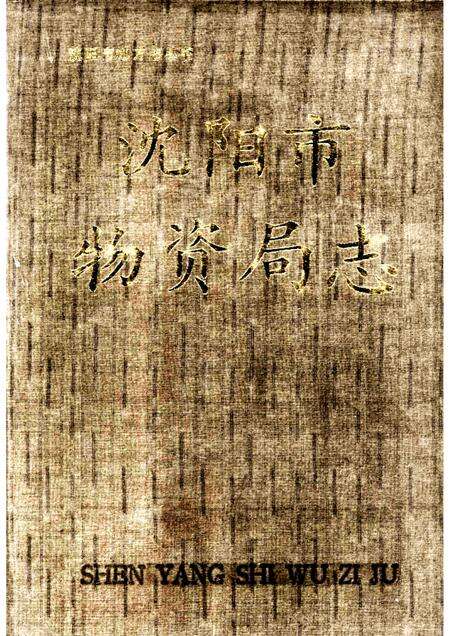 沈阳市
物资局志
SHEN YANG SHI WU ZI JU